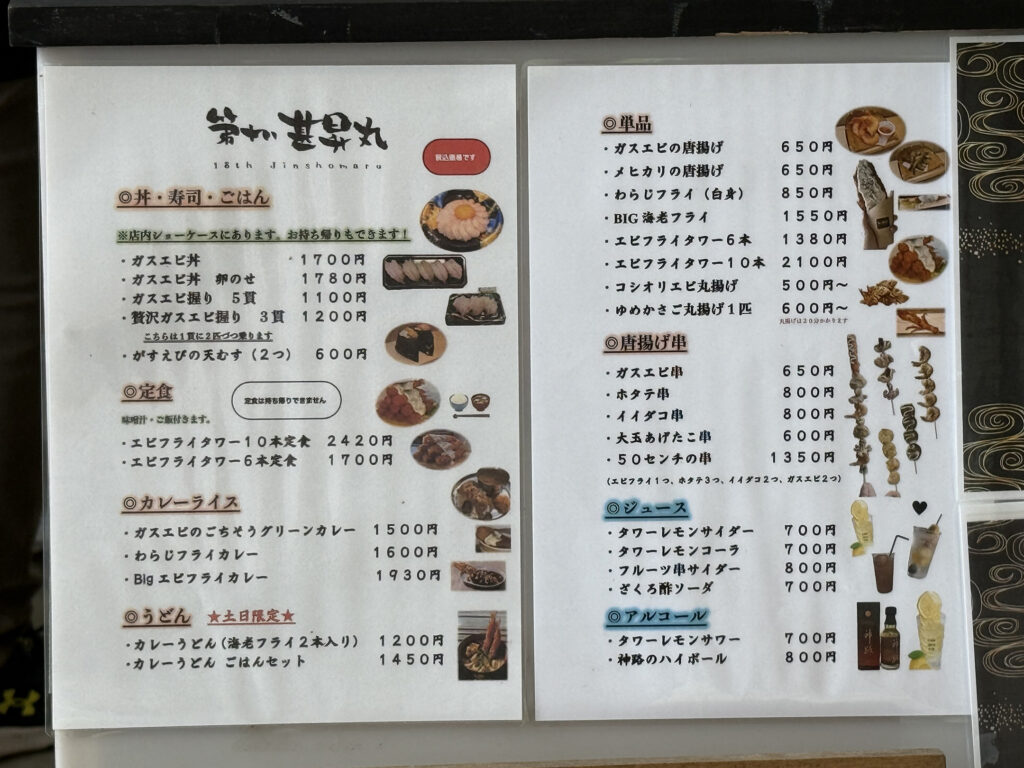 第十八 甚昇丸
18th Jinshomaru
税込価格です
◎丼・寿司・ごはん
※店内ショーケースにあります。お持ち帰りもできます！
・ガスエビ丼 1700円
・ガスエビ丼 卵のせ 1780円
・ガスエビ握り 5貫 1100円
・贅沢ガスエビ握り 3貫 1200円
こちらは1貫に2匹づつ乗ります
・がすえびの天むす（2つ） 600円
◎定食
定食は持ち帰りできません
味噌汁・ご飯付きます。
・エビフライタワー10本定食 2420円
・エビフライタワー6本定食 1700円
◎カレーライス
・ガスエビのごちそうグリーンカレー 1500円
・わらじフライカレー 1600円
・Bigエビフライカレー 1930円
◎うどん ★土日限定★
・カレーうどん（海老フライ2本入り） 1200円
・カレーうどん ごはんセット 1450円
◎単品
・ガスエビの唐揚げ 650円
・メヒカリの唐揚げ 650円
・わらじフライ（白身） 850円
・BIG海老フライ 1550円
・エビフライタワー6本 1380円
・エビフライタワー10本 2100円
・コシオリエビ丸揚げ 500円～
・ゆめかさご丸揚げ1匹 600円～
丸揚げは20分かかります
◎唐揚げ串
・ガスエビ串 650円
・ホタテ串 800円
・イイダコ串 800円
・大玉あげたこ串 600円
・50センチの串 1350円
（エビフライ1つ、ホタテ3つ、イイダコ2つ、ガスエビ2つ）
◎ジュース
・タワーレモンサイダー 700円
・タワーレモンコーラ 700円
・フルーツ串サイダー 800円
・ざくろ酢ソーダ 700円
◎アルコール
・タワーレモンサワー 700円
・神路のハイボール 800円